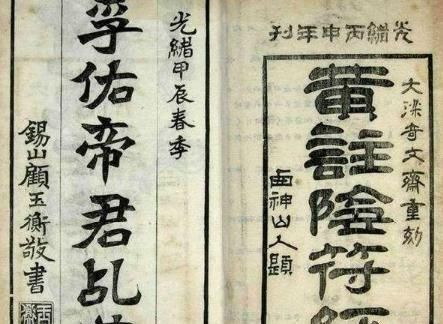 光緒丙申年刊
大梁奇文齋重刻
黃註陰符經
西神山人題
光緒甲辰春季
孚佑帝君乩
錫山顧玉衡敬書